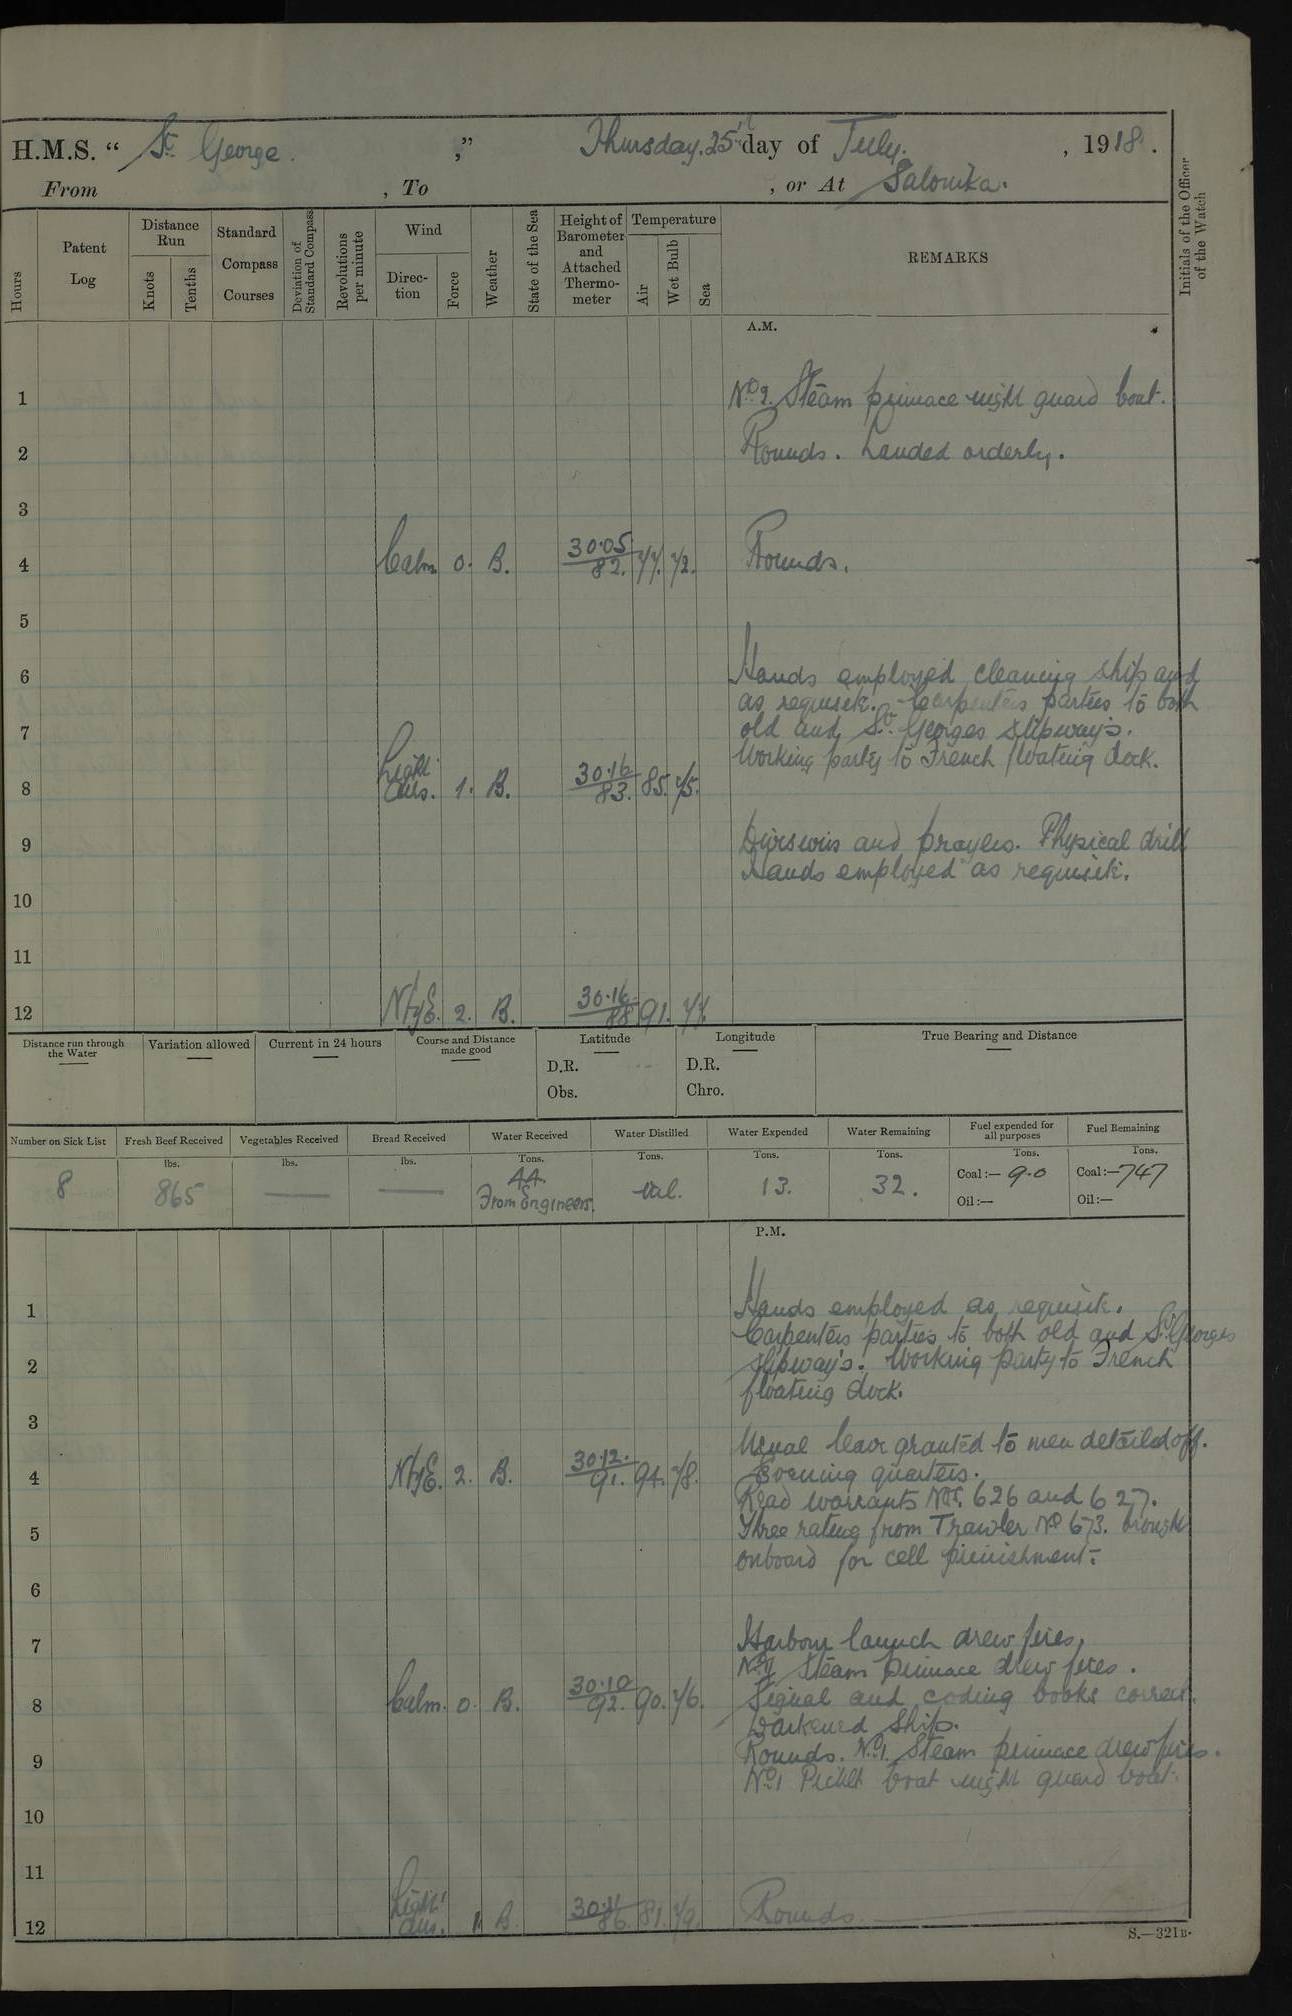 H.M.S. " St. George. ," Thursday. 25th day of July. , 1918.
From , To , or At Salonika.
Hours
Patent Log
Distance Run
Knots
Tenths
Standard Compass Courses
Deviation of Standard Compass
Revolutions per minute
Wind
Direc-tion
Force
Weather
State of the Sea
Height of Barometer and Attached Thermo-meter
Temperature
Air
Wet Bulb
Sea
REMARKS
Initials of the Officer of the Watch
A.M.
1 No. 2. Steam pinnace night guard boat.
2 Rounds. Landed orderly.
3
4 Calm 0. B. 30.05 82. 77. 72. Rounds.
5
6 Hands employed cleaning ship and
as requisite. Carpenters parties to both
7 old and St. Georges slipway's.
Working party to French floating dock.
8 Light airs. 1. B. 30.16 83. 85. 75.
9 Divisions and prayers. Physical drill
Hands employed as requisite.
10
11
12 NbyE. 2. B. 30.16 88 91. 77.
Distance run through the Water
Variation allowed
Current in 24 hours
Course and Distance made good
Latitude
D.R.
Obs.
Longitude
D.R.
Chro.
True Bearing and Distance
Number on Sick List
8
Fresh Beef Received
lbs.
865
Vegetables Received
lbs.
—
Bread Received
lbs.
—
Water Received
Tons.
44.
From Engineers.
Water Distilled
Tons.
Water Expended
Tons.
13.
Water Remaining
Tons.
32.
Fuel expended for all purposes
Tons.
Coal:— 9.0
Oil:—
Fuel Remaining
Tons.
Coal:— 747
Oil:—
P.M.
1 Hands employed as requisite.
Carpenters parties to both old and St. Georges
2 slipway's. Working party to French
floating dock.
3 Usual leave granted to men detailed off.
4 NbyE. 2. B. 30.12. 91. 94. 78. Evening quarters.
Read warrants Nos. 626 and 627.
5 Three rating from Trawler No 673. brought
onboard for cell punishment.
6
7 Harbour launch drew fires,
Steam pinnace drew fires.
8 Calm. 0. B. 30.10 92. 90. 76. Signal and coding books correct.
Darkened Ship.
9 Rounds. No. 1. Steam pinnace drew fires.
No. 1 Picket boat night guard boat.
10
11
12 Light airs. 1 B. 30.11 86. 81. Rounds
S.—321B.